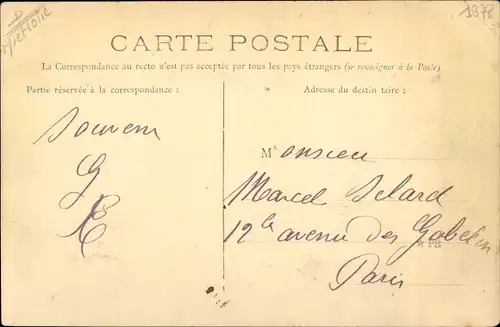 CARTE POSTALE
La Correspondance au recto n'est pas acceptée par tous les pays étrangers (se renseigner à la Poste)
Partie réservée à la correspondance :
Souvenir
G
E
Adresse du destinataire :
Monsieur
Marcel Selard
12 avenue des Gobelins
Paris